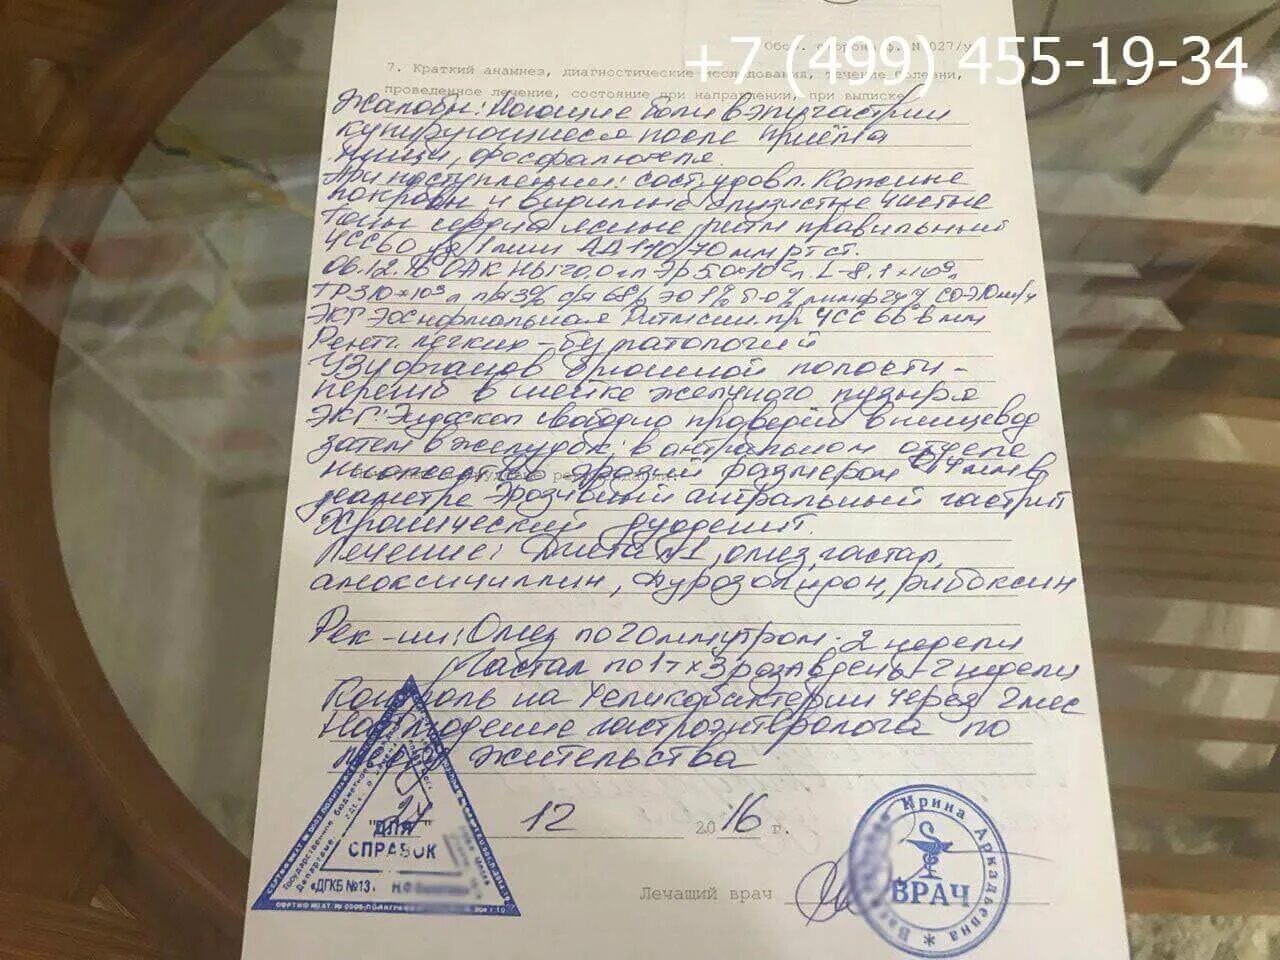 +7 (499) 455-19-34
Обор. сторона ф. N 027/у
7. Краткий анамнез, диагностические исследования, течение болезни,
проведенное лечение, состояние при направлении, при выписке
Жалобы: Ноющие боли в эпигастрии
купирующиеся после приёма
пищи, фосфалюгеля.
При поступлении: сост. удовл. Кожные
покровы и видимые слизистые чистые
Тоны сердца ясные, ритм правильный
ЧСС 60 уд/1 мин АД 110/70 мм рт ст.
06.12.16 ОАК
ЭКГ ЭОС нормальная Ритм син. пр. ЧСС 66 в мм
Рентг. легких - без патологий
УЗИ органов брюшной полости -
перегиб в шейке желчного пузыря
ЭКГ: Эндоскоп свободно проведён в пищевод
затем в желудок: в антральном отделе
множество эрозий размером
диаметре Эрозивный антральный гастрит
Хронический дуоденит.
Лечение: Диета №1, омез, гастал,
амоксициллин, фуразолидон, рибоксин
Рек-ии: Омез по утром - 2 недели
Гастал по 1т х 3 раза в день - 2 недели
Контроль на Хеликобактерии через 2 мес
Наблюдение гастроэнтеролога по
месту жительства
24 12 2016 г.
Лечащий врач
"ДЛЯ"
СПРАВОК
«ДГКБ №13»
Ирина Аркадьевна
ВРАЧ